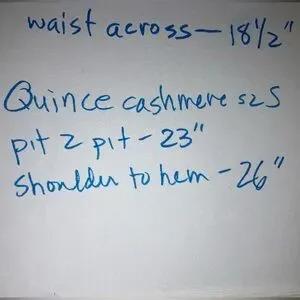 waist across - 18 1/2"
Quince cashmere sz S
pit 2 pit - 23"
Shoulder to hem - 26"